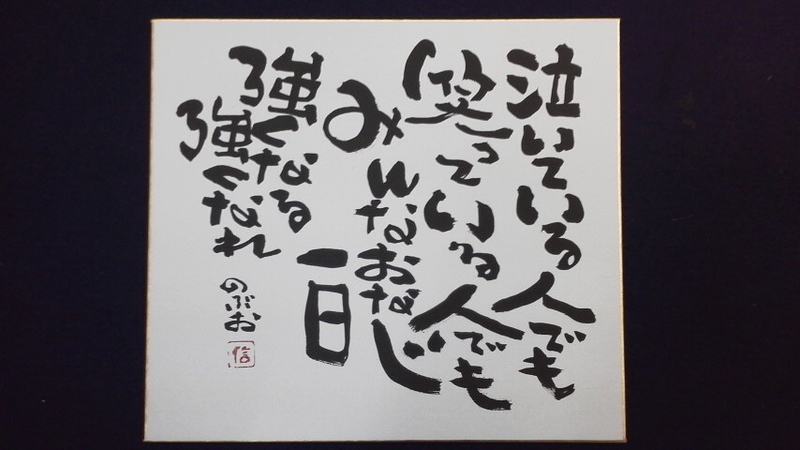 泣いている人でも
笑っている人でも
みんなおなじ
一日
強くなる
強くなれ
のぶお
信